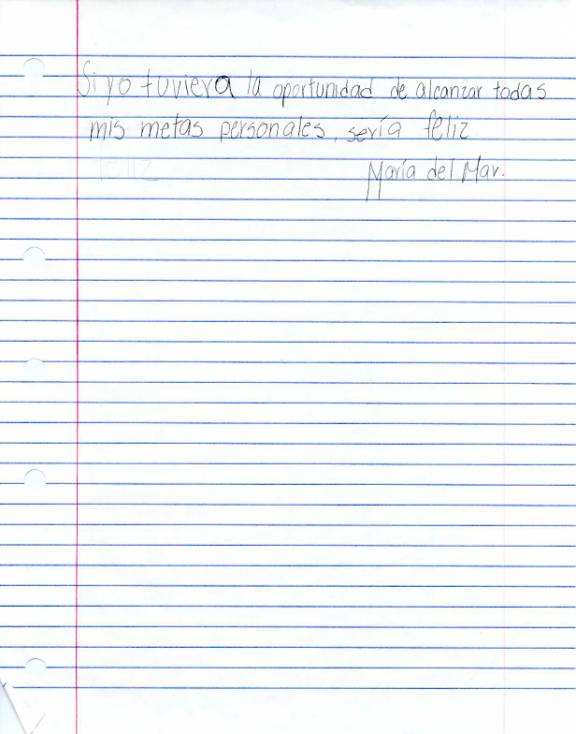 Si yo tuviera la oportunidad de alcanzar todas
mis metas personales, sería feliz
feliz
María del Mar.